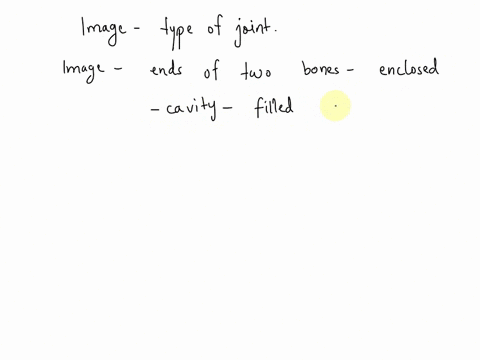 Image - type of joint.
Image - ends of two bones - enclosed
- cavity - filled